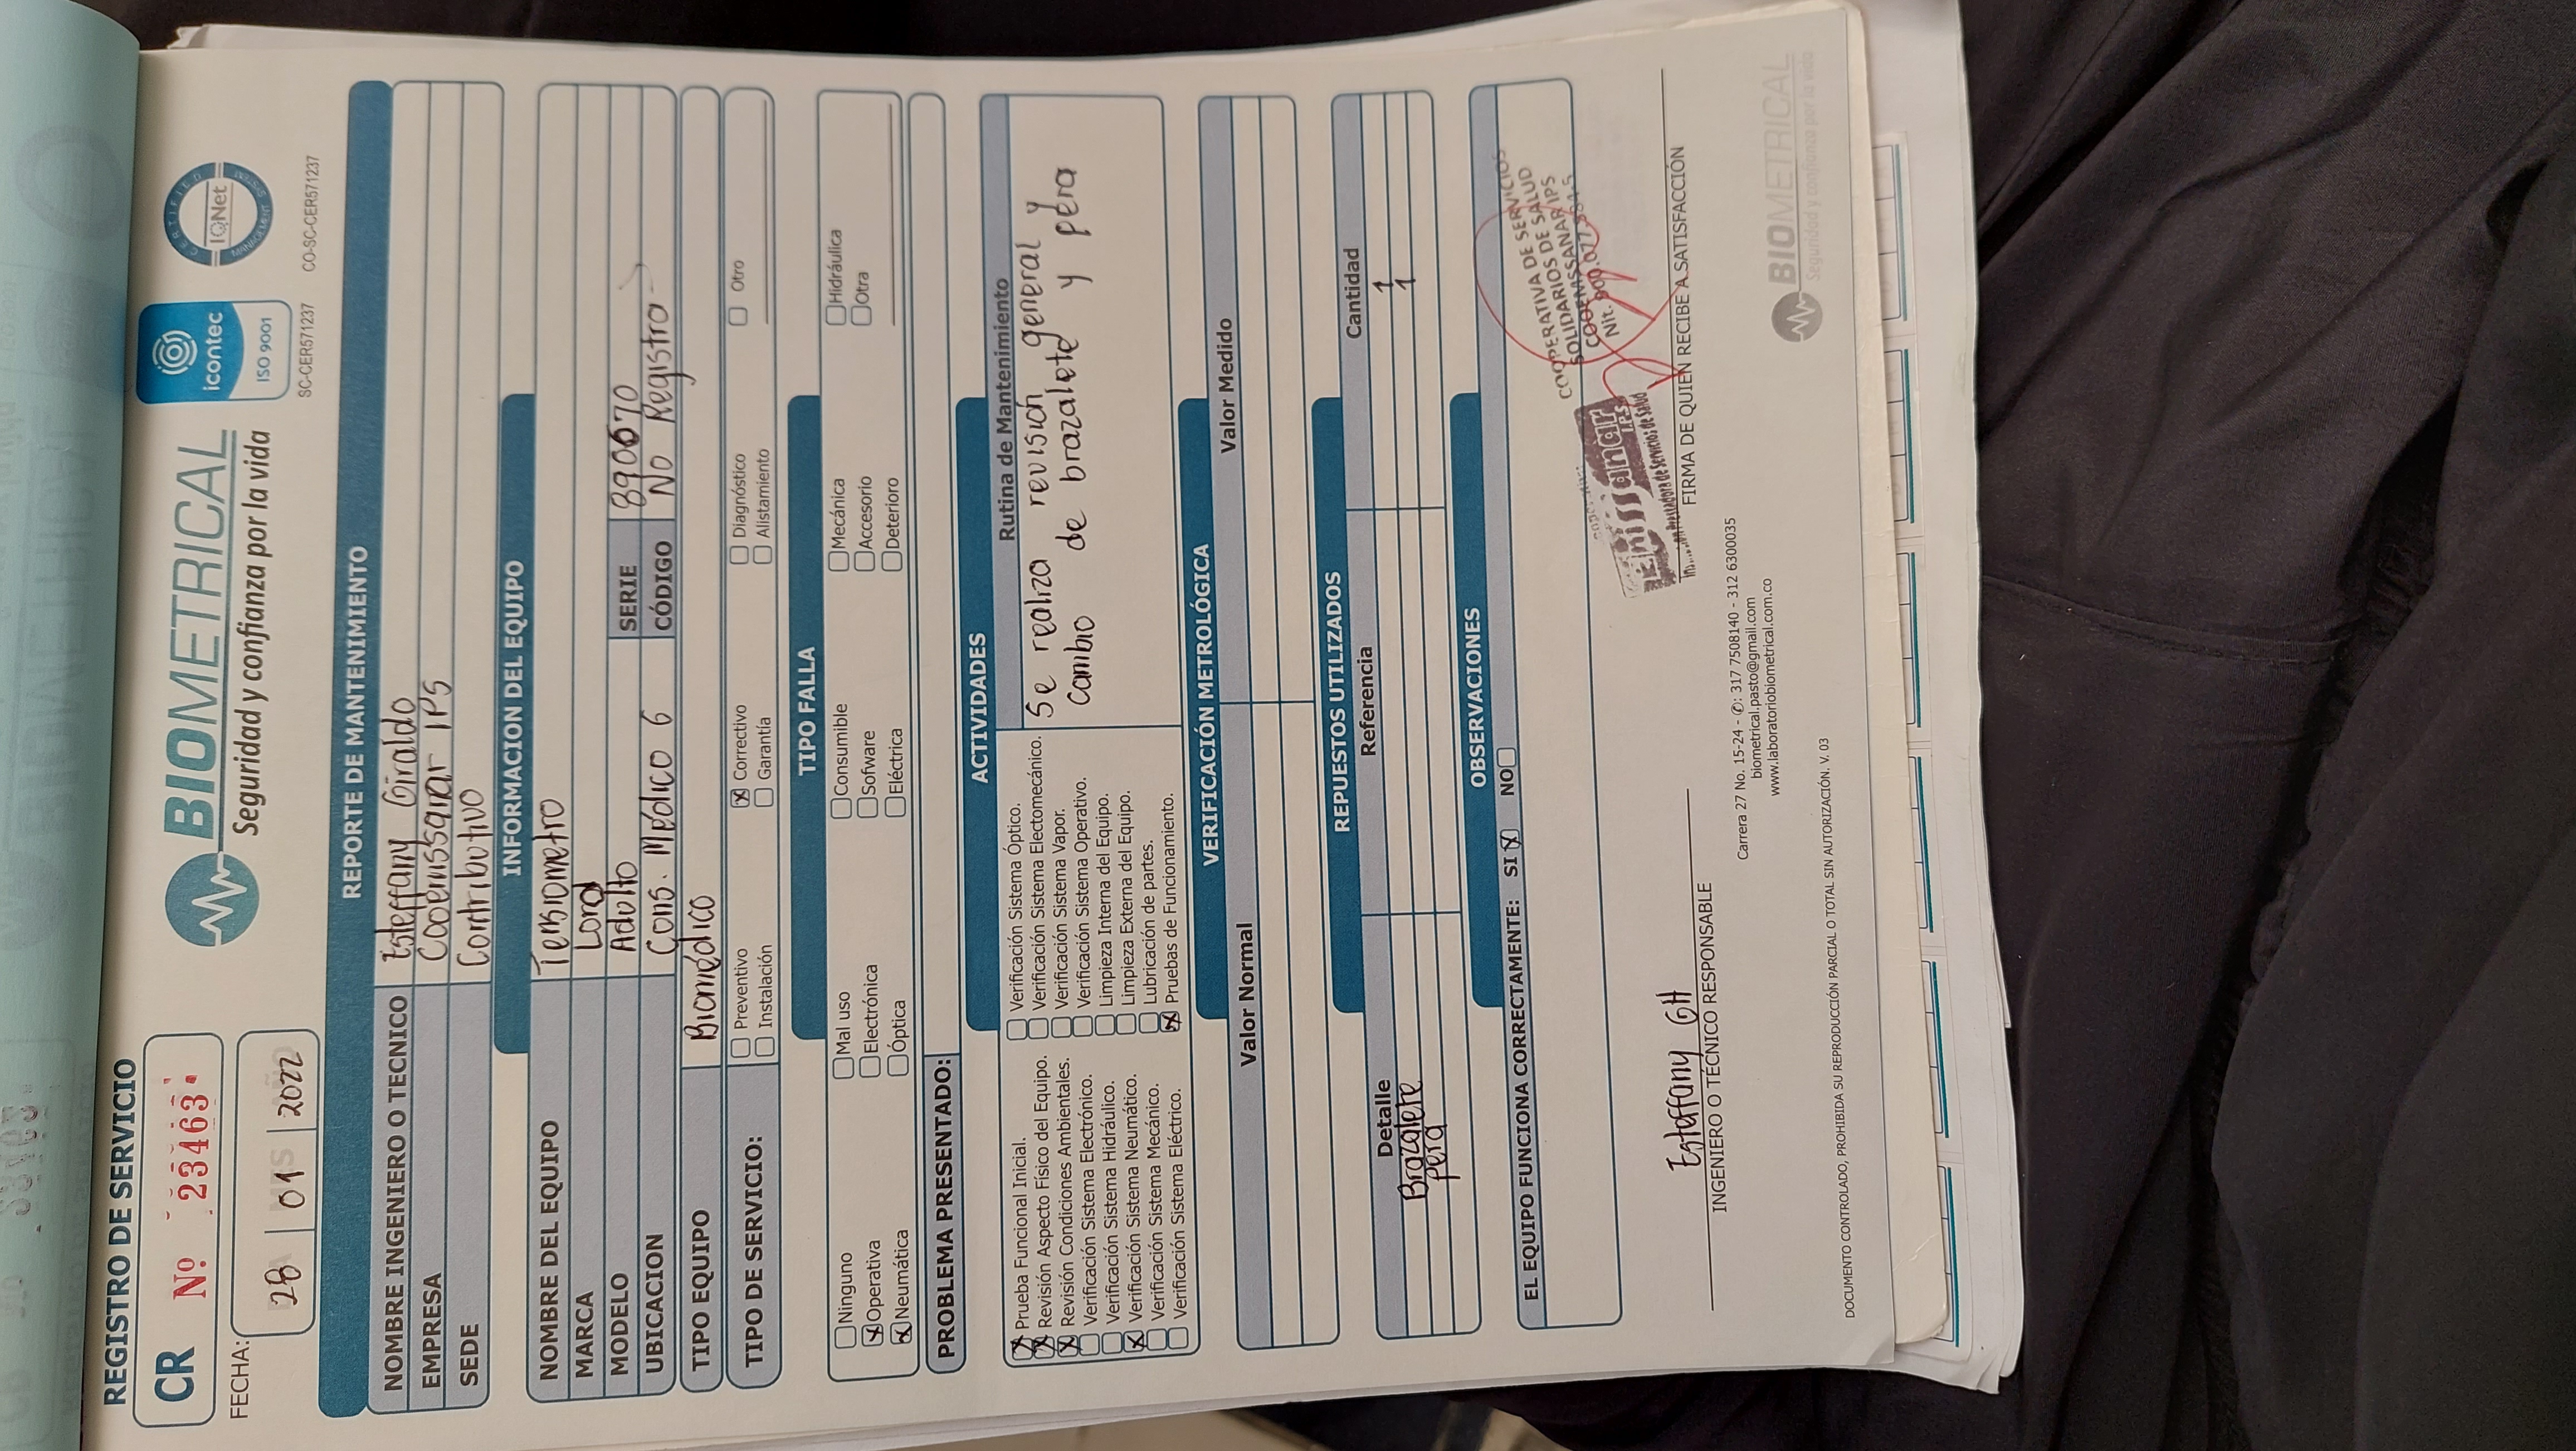 REGISTRO DE SERVICIO
CR Nº 23463
FECHA: 28 01 2022
BIOMETRICAL
Seguridad y confianza por la vida
icontec
ISO 9001
SC-CER571237
CERTIFIED
IQNet
MANAGEMENT SYSTEM
CO-SC-CER571237
REPORTE DE MANTENIMIENTO
NOMBRE INGENIERO O TECNICO Esteffany Giraldo
EMPRESA Cooemssanar IPS
SEDE Contributivo
INFORMACION DEL EQUIPO
NOMBRE DEL EQUIPO Tensiometro
MARCA Lord
MODELO Adulto SERIE 890670
UBICACION Cons. Médico 6 CÓDIGO No Registra
TIPO EQUIPO Biomédico
TIPO DE SERVICIO:
Preventivo Correctivo Diagnóstico Otro
Instalación Garantía Alistamiento
TIPO FALLA
Ninguno Mal uso Consumible Mecánica Hidráulica
Operativa Electrónica Sofware Accesorio Otra
Neumática Óptica Eléctrica Deterioro
PROBLEMA PRESENTADO:
ACTIVIDADES
Prueba Funcional Inicial.
Revisión Aspecto Físico del Equipo.
Revisión Condiciones Ambientales.
Verificación Sistema Electrónico.
Verificación Sistema Hidráulico.
Verificación Sistema Neumático.
Verificación Sistema Mecánico.
Verificación Sistema Eléctrico.
Verificación Sistema Óptico.
Verificación Sistema Electomecánico.
Verificación Sistema Vapor.
Verificación Sistema Operativo.
Limpieza Interna del Equipo.
Limpieza Externa del Equipo.
Lubricación de partes.
Pruebas de Funcionamiento.
Rutina de Mantenimiento
Se realiza revisión general y
cambio de brazalete y pera
VERIFICACIÓN METROLÓGICA
Valor Normal Valor Medido
REPUESTOS UTILIZADOS
Detalle Referencia Cantidad
Brazalete 1
pera 1
OBSERVACIONES
EL EQUIPO FUNCIONA CORRECTAMENTE: SI NO
COOPERATIVA DE SERVICIOS
SOLIDARIOS DE SALUD
COOEMSSANAR IPS
Nit. 900.077.584-5
Emssanar
I.P.S.
Prestadora de Servicios de Salud
Esteffany GH
INGENIERO O TÉCNICO RESPONSABLE
FIRMA DE QUIEN RECIBE A SATISFACCIÓN
Carrera 27 No. 15-24 - ✆: 317 7508140 - 312 6300035
biometrical.pasto@gmail.com
www.laboratoriobiometrical.com.co
BIOMETRICAL
Seguridad y confianza por la vida
DOCUMENTO CONTROLADO, PROHIBIDA SU REPRODUCCIÓN PARCIAL O TOTAL SIN AUTORIZACIÓN. V. 03